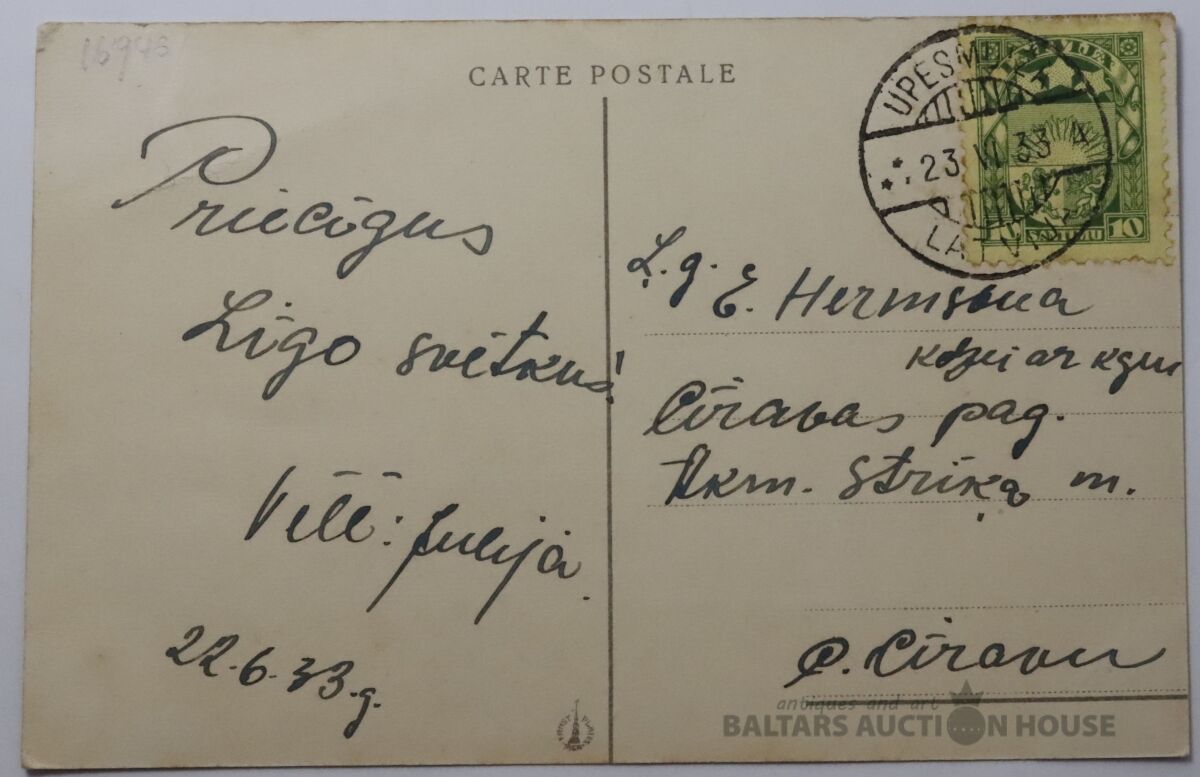 16943
CARTE POSTALE
Priecīgus
Līgo svētkus!
Vēlē: Julija
22.6.33.g.
UPESMUIŽA
23 VI 33
LATVIJA
LATVIJA
10 SANTIMU 10
Ļ.g. E. Hermsona
kdzei ar kgu
Cīravas pag.
Akm. Strīķo m.
p. Cīravu
antiques and art
BALTARS AUCTION HOUSE